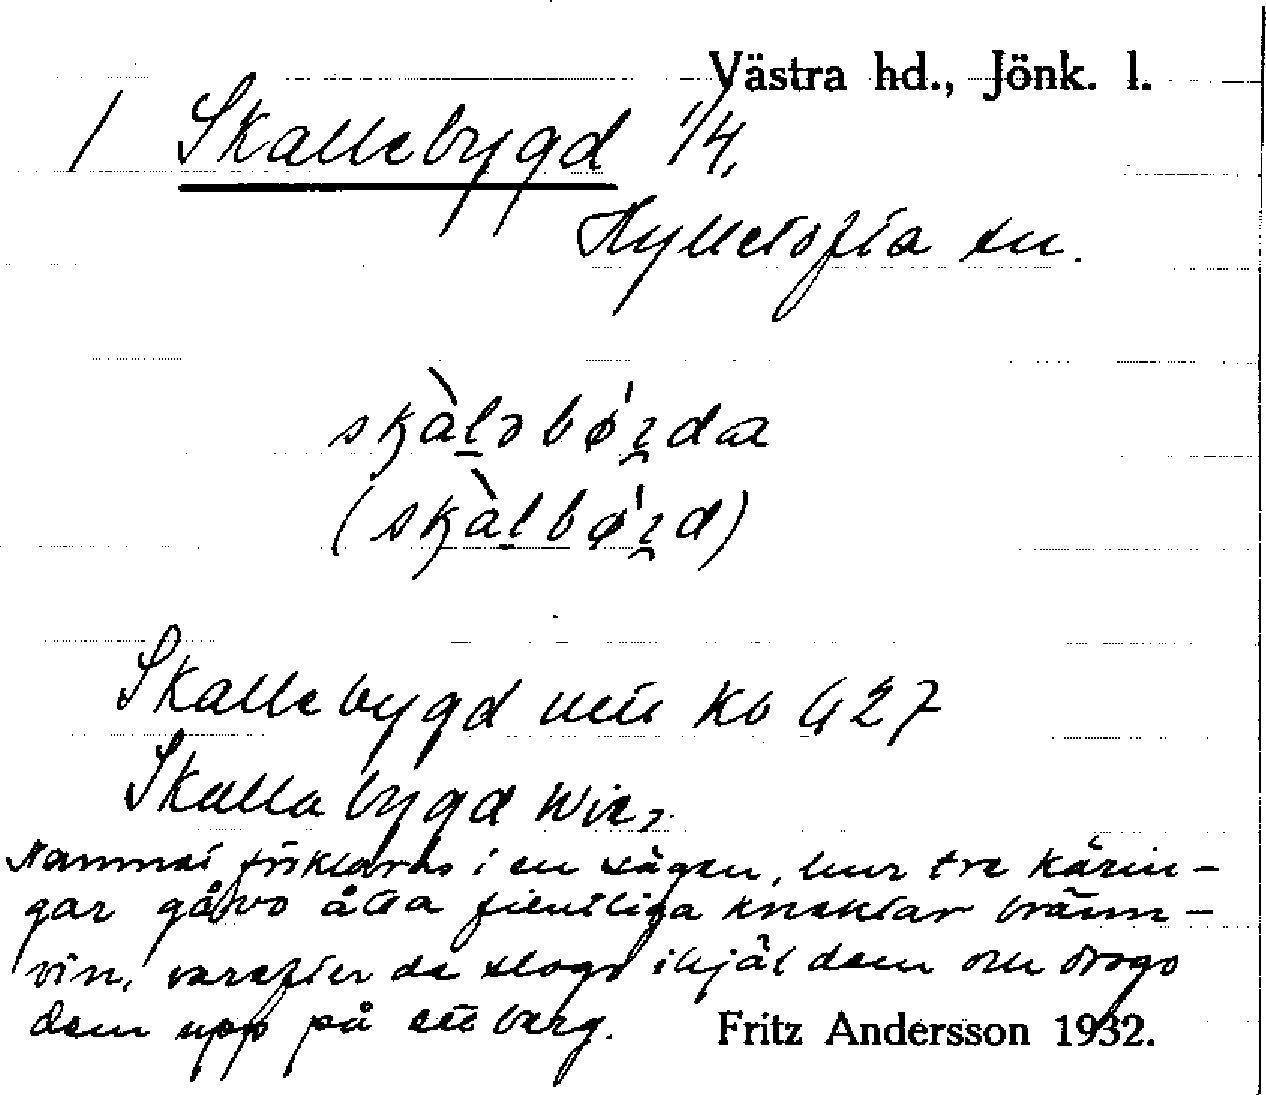 Västra hd., Jönk. l.
1 Skallebygd 1/4,
Hylletofta sn.
skàləbǿɀda
(skàlbǿɀd)
Skallebygd utu Kb 427
Skallabygd Wir,
Namnet förklaras i en sägen, hur tre kärin-
gar gåvo åtta fientliga knektar bränn-
vin, varefter de slogo ihjäl dem och drogo
dem upp på ett berg.
Fritz Andersson 1932.